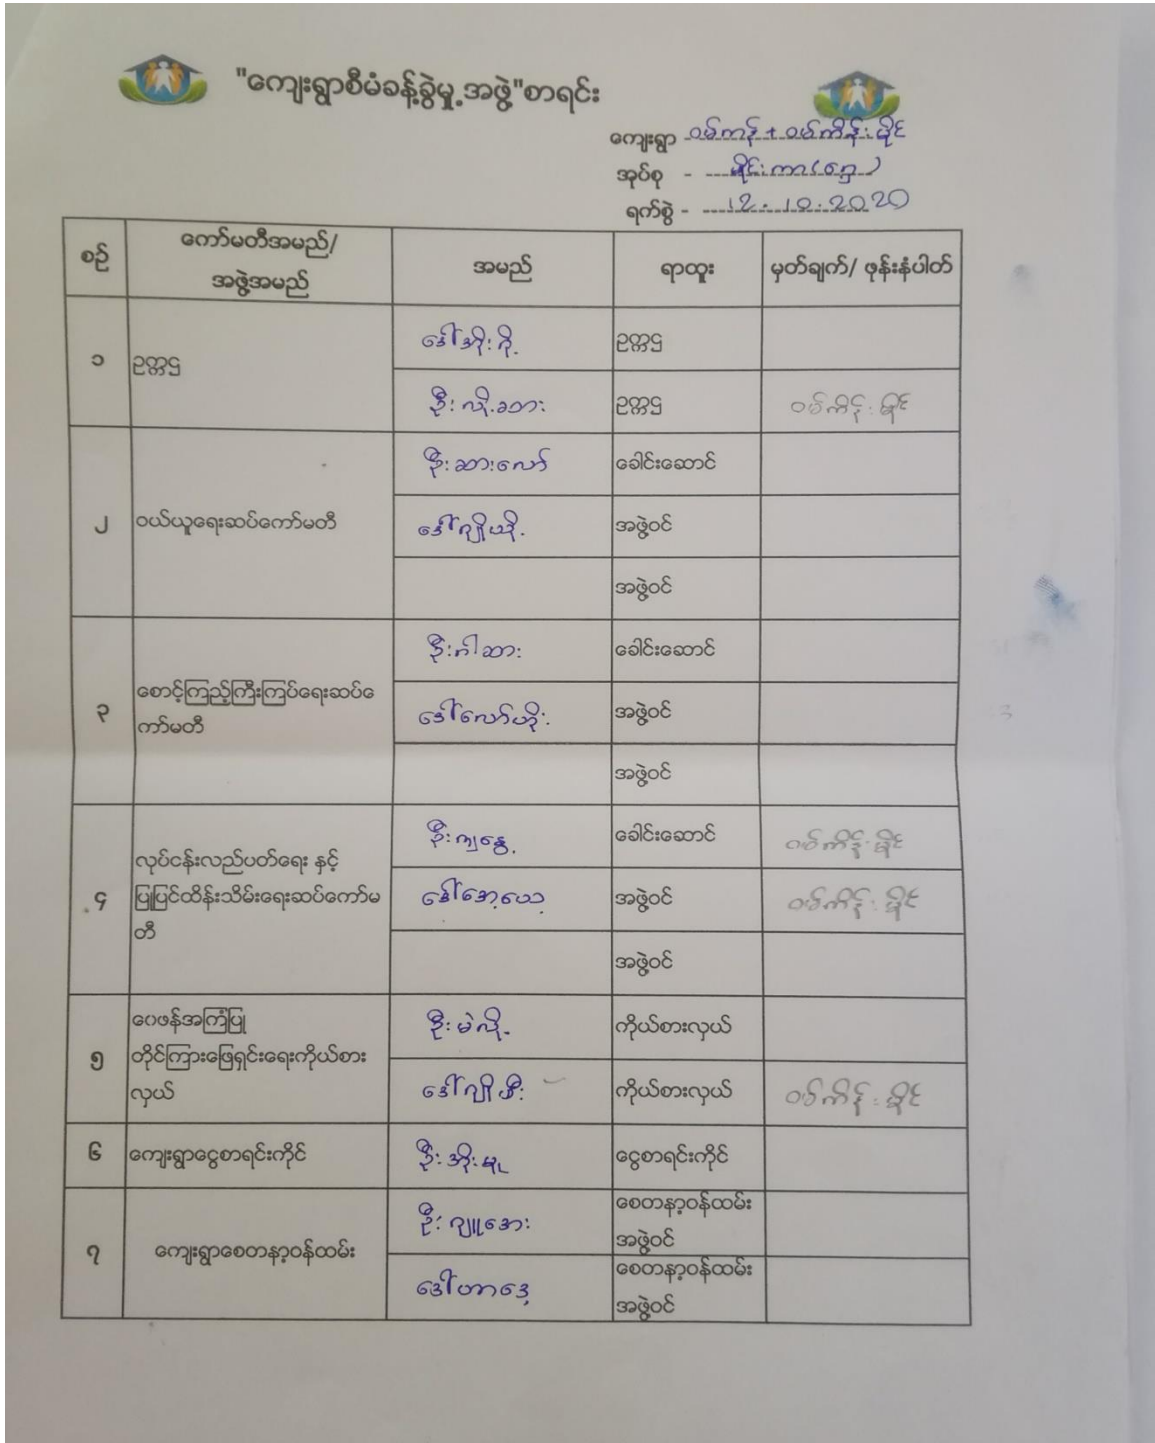 "ကျေးရွာစီမံခန့်ခွဲမှု့အဖွဲ့"စာရင်း
ကျေးရွာ - ဝမ်ကန် + ဝမ်ကိန်းမိုင်
အုပ်စု - မိုင်းကာ(ဗဟို)
ရက်စွဲ - 12.10.2020
စဉ် ကော်မတီအမည်/ အဖွဲ့အမည် အမည် ရာထူး မှတ်ချက်/ ဖုန်းနံပါတ်
၁ ဥက္ကဌ ဒေါ်အိုးဂို့ ဥက္ကဌ
ဦးလို့ခသား ဥက္ကဌ ဝမ်ကိန်းမိုင်
၂ ဝယ်ယူရေးဆပ်ကော်မတီ ဦးဆားလော် ခေါင်းဆောင်
ဒေါ်ဂျိုယို့ အဖွဲ့ဝင်
အဖွဲ့ဝင်
၃ စောင့်ကြည့်ကြီးကြပ်ရေးဆပ်ကော်မတီ ဦးဂါဆား ခေါင်းဆောင်
ဒေါ်လော်ဟိုး အဖွဲ့ဝင်
အဖွဲ့ဝင်
၄ လုပ်ငန်းလည်ပတ်ရေး နှင့် ပြုပြင်ထိန်းသိမ်းရေးဆပ်ကော်မတီ ဦးကျနွေ့ ခေါင်းဆောင် ဝမ်ကိန်းမိုင်
ဒေါ်အေ့ယေ့ အဖွဲ့ဝင် ဝမ်ကိန်းမိုင်
အဖွဲ့ဝင်
၅ ဝေဖန်အကြံပြု တိုင်ကြားဖြေရှင်းရေးကိုယ်စားလှယ် ဦးမဲလို့ ကိုယ်စားလှယ်
ဒေါ်ဂျိုဖီး ကိုယ်စားလှယ် ဝမ်ကိန်းမိုင်
၆ ကျေးရွာငွေစာရင်းကိုင် ဦးအိုးမူ ငွေစာရင်းကိုင်
၇ ကျေးရွာစေတနာ့ဝန်ထမ်း ဦးဂျူအေး စေတနာ့ဝန်ထမ်းအဖွဲ့ဝင်
ဒေါ်ဟာဒေ့ စေတနာ့ဝန်ထမ်းအဖွဲ့ဝင်